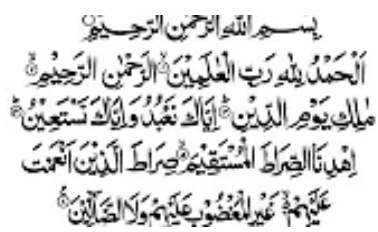 بِسْمِ اللّٰهِ الرَّحْمٰنِ الرَّحِيْمِ
اَلْحَمْدُ لِلّٰهِ رَبِّ الْعٰلَمِيْنَ ۙ الرَّحْمٰنِ الرَّحِيْمِ ۙ
مٰلِكِ يَوْمِ الدِّيْنِ ؕ اِيَّاكَ نَعْبُدُ وَاِيَّاكَ نَسْتَعِيْنُ ؕ
اِهْدِنَا الصِّرَاطَ الْمُسْتَقِيْمَ ۙ صِرَاطَ الَّذِيْنَ اَنْعَمْتَ
عَلَيْهِمْ ۙ غَيْرِ الْمَغْضُوْبِ عَلَيْهِمْ وَلَا الضَّآلِّيْنَ